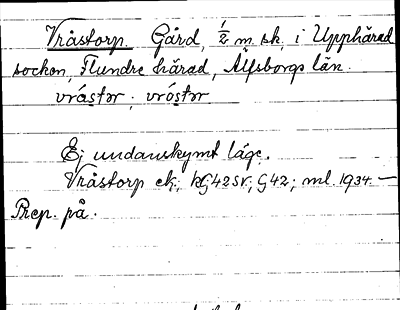 Vråstorp. Gård, 1/2 m. sk. i Upphärad
socken, Flundre härad, Älfsborgs län.
vråstər, vróstər
Ej undanskymt läge.
Vråstorp ek; kG42sv; G42; ml. 1934. —
Prep. på.